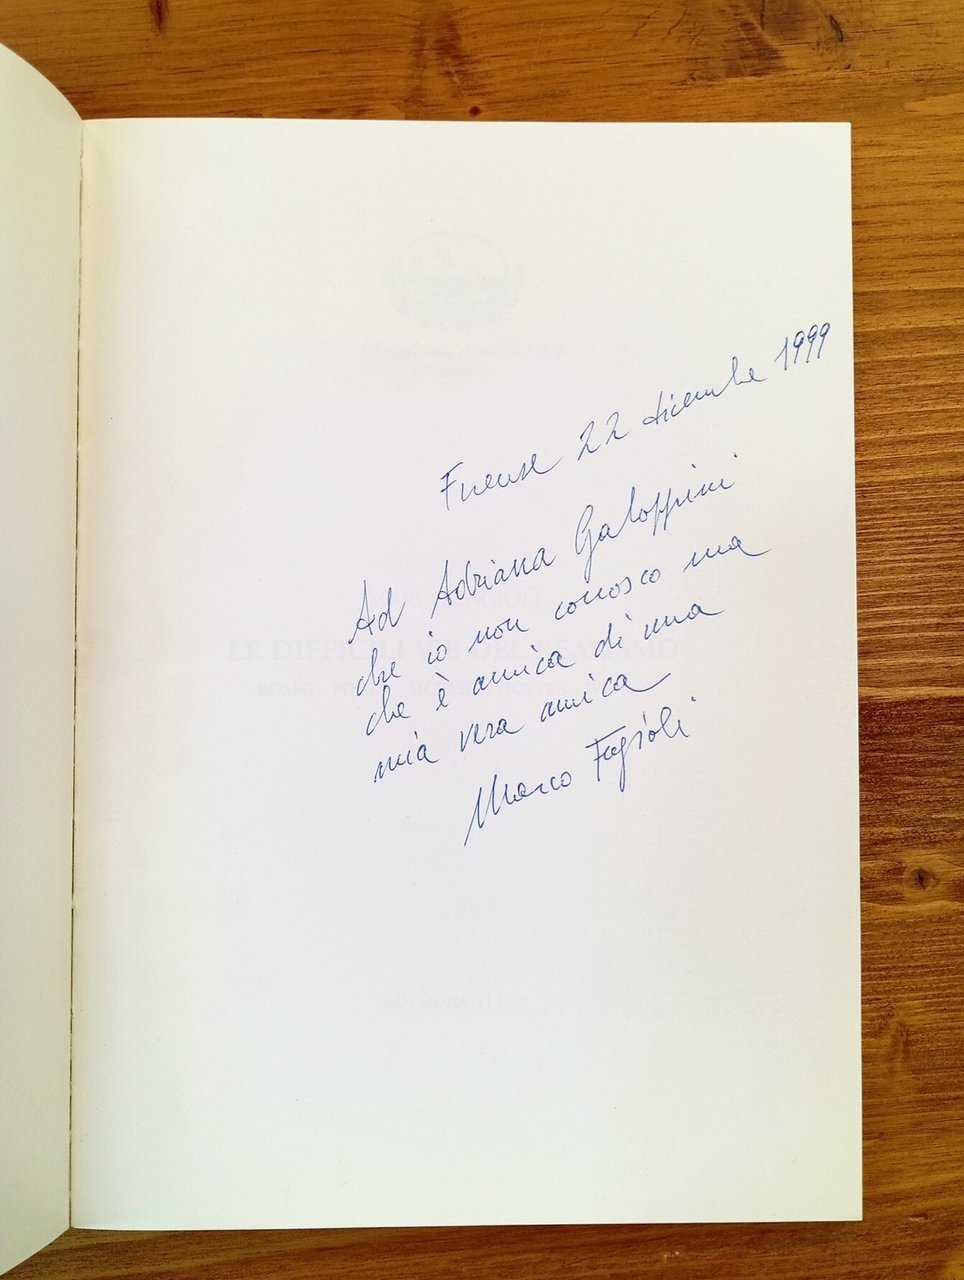 Firenze 22 dicembre 1999
Ad Adriana Galoppini
che io non conosco ma
che è amica di una
mia vera amica
Marco Fagioli
LE DIFFICILI VIE DEL
ROSSO